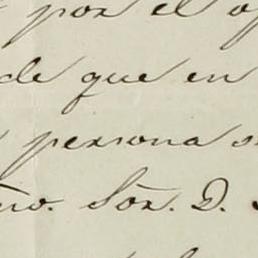 por el
de que en
persona
Sõr. D.